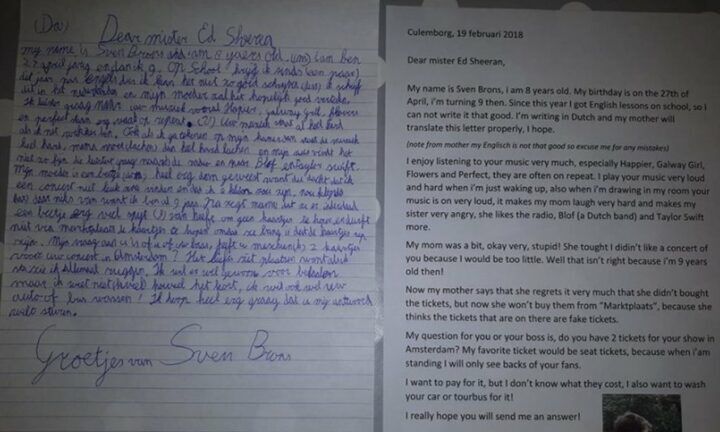 Dear mister Ed Sheeren
my name is Sven Brons and i am 8 years old, ik ben
27 april jarig en dan ik 9. Op School krijg ik sinds (een paar)
dit jaar pas Engels dus ik kan het niet zo goed schrijven (dus) ik schrijf
dit in het nederlands en mijn moeder zal het hopelijk goed vertalen.
Ik luister graag naar uw muziek vooral Happier, galway girl, flowers
en perfect staan erg vaak op repeat. muziek vaak al heel hard
als ik net wakker ben. Ook als ik ga tekenen op mijn kamer staat de muziek
heel hard, mama moet lachen en mijn zus vindt het
niet zo fijn die luistert graag naar de radio en naar Blof en taylor swift.
Mijn moeder is een beetje dom, heel erg dom geweest want die dacht dat ik
een concert niet leuk zou vinden omdat ik te klein zou zijn, nou
want ik ben al 9 jaar.
een beetje erg veel spijt
van marktplaats
zijn. Mijn vraag aan u is of u of uw baas 2 kaartjes
voor uw concert in Amsterdam? Het liefst zit plaatsen want als ik
sta zie ik alleen ruggen. Ik wil er wel gewoon voor betalen
maar ik weet niet hoeveel het kost, ik wil ook wel uw
auto of bus wassen! Ik hoop heel erg graag dat u mij antwoord
wilt sturen.
Groetjes van Sven Brons
Culemborg, 19 februari 2018
Dear mister Ed Sheeran,
My name is Sven Brons, I am 8 years old. My birthday is on the 27th of
April, i'm turning 9 then. Since this year I got English lessons on school, so i
can not write it that good. I'm writing in Dutch and my mother will
translate this letter properly, I hope.
(note from mother my Englisch is not that good so excuse me for any mistakes)
I enjoy listening to your music very much, especially Happier, Galway Girl,
Flowers and Perfect, they are often on repeat. I play your music very loud
and hard when i'm just waking up, also when i'm drawing in my room your
music is on very loud, it makes my mom laugh very hard and makes my
sister very angry, she likes the radio, Blof (a Dutch band) and Taylor Swift
more.
My mom was a bit, okay very, stupid! She tought I didn't like a concert of
you because I would be too little. Well that isn't right because i'm 9 years
old then!
Now my mother says that she regrets it very much that she didn't bought
the tickets, but now she won't buy them from "Marktplaats", because she
thinks the tickets that are on there are fake tickets.
My question for you or your boss is, do you have 2 tickets for your show in
Amsterdam? My favorite ticket would be seat tickets, because when i'am
standing I will only see backs of your fans.
I want to pay for it, but I don't know what they cost, I also want to wash
your car or tourbus for it!
I really hope you will send me an answer!